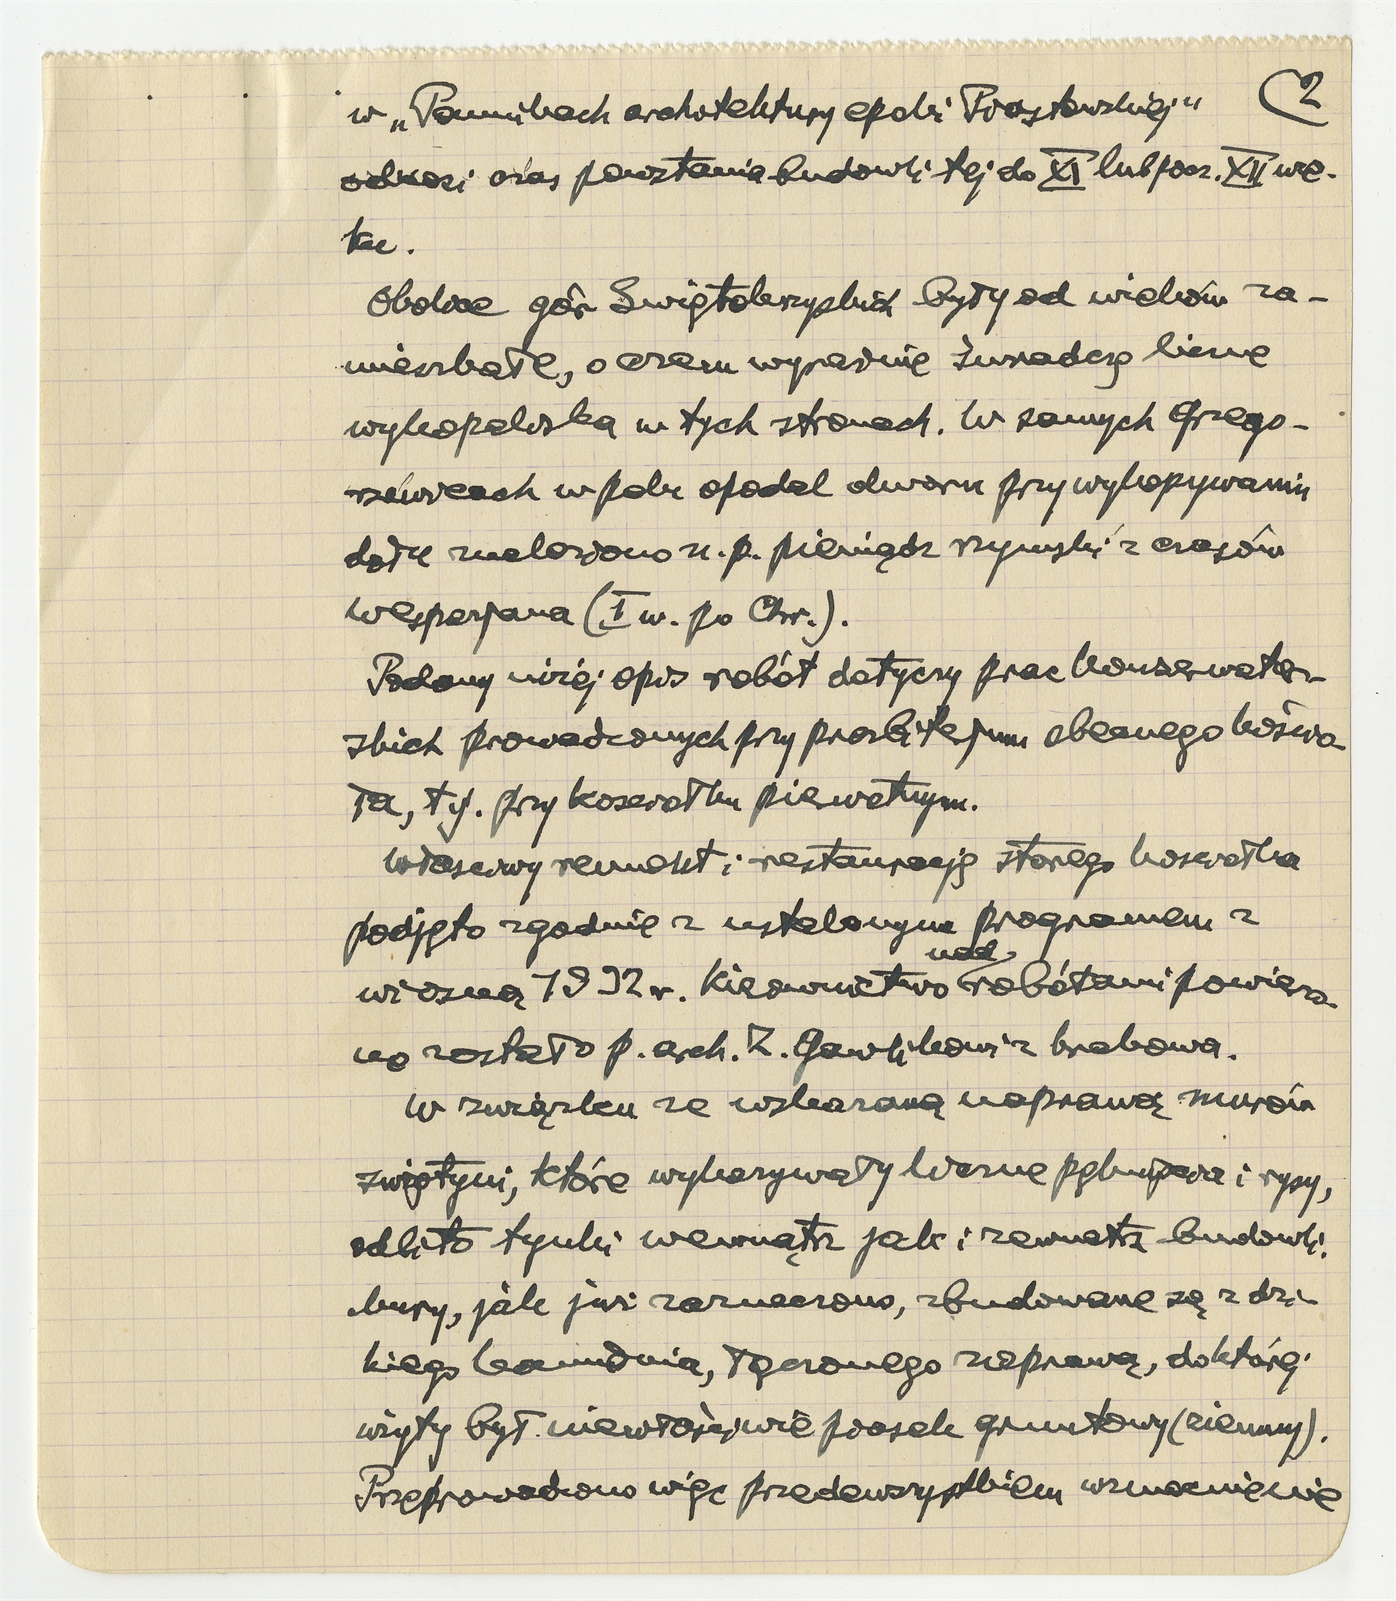 2
w „Pomnikach architektury epoki Piastowskiej"
odnosi czas powstania budowli tej do XI lub pocz. XII wie-
ku.
Okolice gór Świętokrzyskich były od wieków za-
mieszkałe, o czem wyraźnie świadczą liczne
wykopaliska w tych stronach. W samych Grzego-
rzewicach w polu opodal dworu przy wykopywaniu
dołu znaleziono n.p. pieniądz rzymski z czasów
Wespazjana (I w. po Chr.).
Podany niżej opis robót dotyczy prac konserwator-
skich prowadzonych przy prezbiterjum obecnego kościo-
ła, tj. przy kościołku pierwotnym.
Właściwy remont i restaurację starego kościołka
podjęto zgodnie z ustalonym programem z
wiosną 1932 r. Kierownictwo nad robótami powierzo-
no zostało p. arch. Z. Gawlikowi z Krakowa.
W związku ze wskazaną naprawą murów
świątyni, które wykazywały liczne pęknięcia i rysy,
odbito tynki wewnątrz jak i zewnątrz budowli.
Mury, jak już zaznaczono, zbudowane są z dzi-
kiego kamienia, łączonego zaprawą, do której
użyty był niewłaściwie piasek gruntowy (ziemny).
Przeprowadzono więc przedewszystkiem wzmocnienie